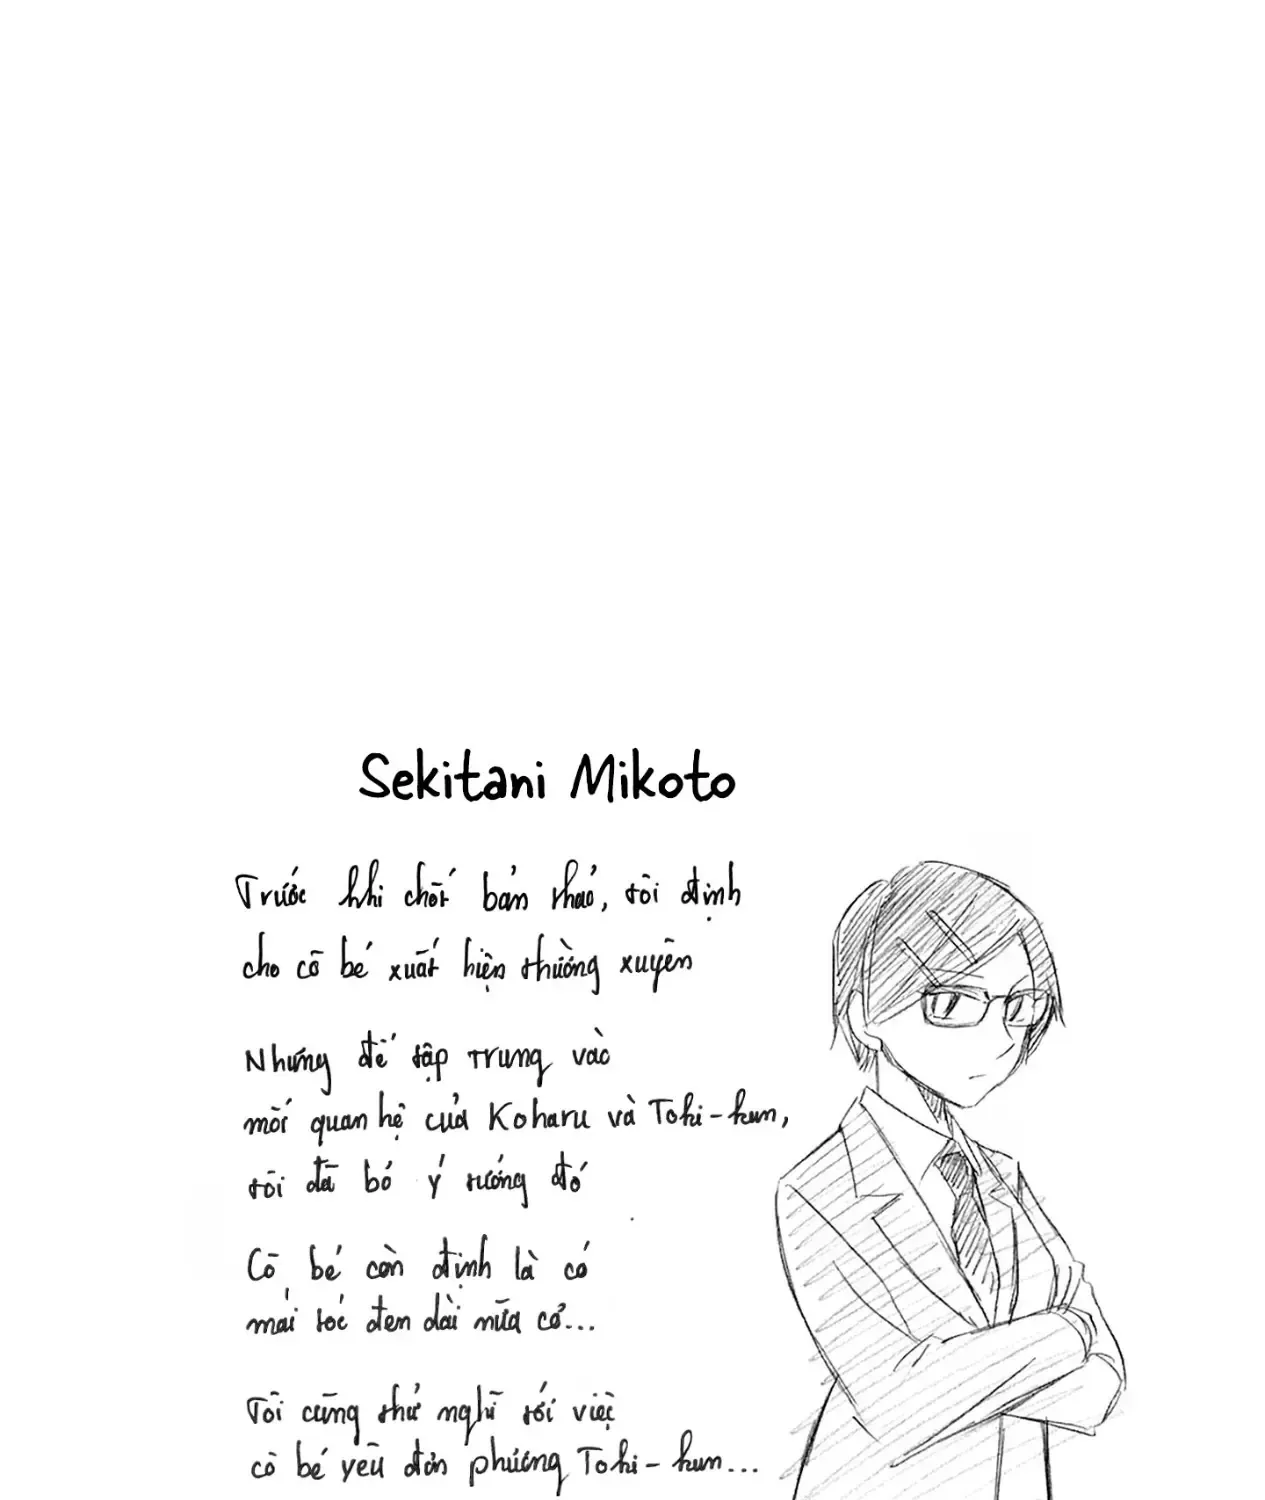 Sekitani Mikoto
Trước khi chốt bản thảo, tôi định
cho cô bé xuất hiện thường xuyên
Nhưng để tập trung vào
mối quan hệ của Koharu và Toki-kun,
tôi đã bỏ ý tưởng đó
Cô bé còn định là có
mái tóc đen dài nữa cơ...
Tôi cũng thử nghĩ tới việc
cô bé yêu đơn phương Toki-kun...